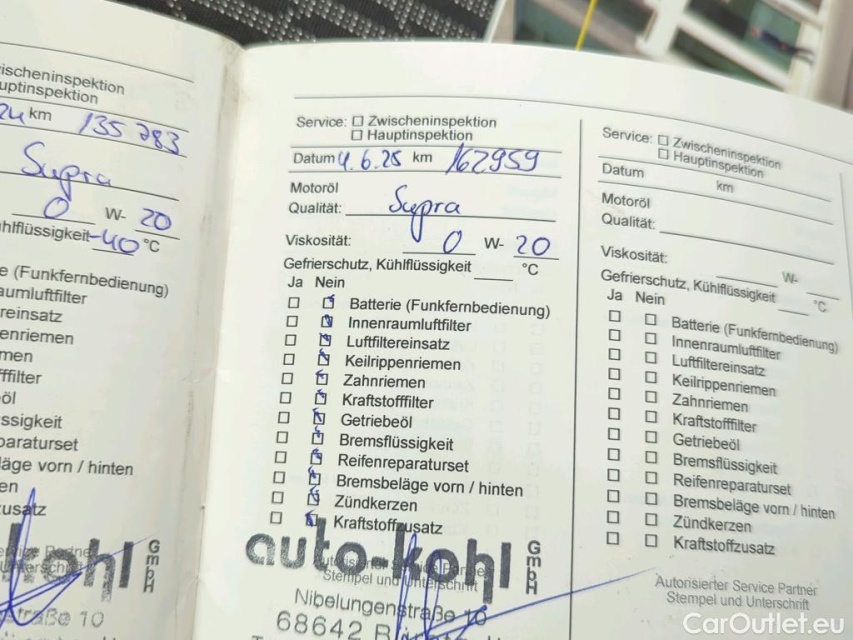 wischeninspektion
uptinspektion
24 km 135 783
Supra
0 W- 20
ühlflüssigkeit -40 °C
e (Funkfernbedienung)
aumluftfilter
reinsatz
enriemen
men
ffilter
öl
ssigkeit
paraturset
läge vorn / hinten
en
zusatz
kohl GmbH
straße 10
Service: Zwischeninspektion
Hauptinspektion
Datum 4.6.25 km 162959
Motoröl
Qualität: Supra
Viskosität: 0 W- 20
Gefrierschutz, Kühlflüssigkeit °C
Ja Nein
Batterie (Funkfernbedienung)
Innenraumluftfilter
Luftfiltereinsatz
Keilrippenriemen
Zahnriemen
Kraftstofffilter
Getriebeöl
Bremsflüssigkeit
Reifenreparaturset
Bremsbeläge vorn / hinten
Zündkerzen
Kraftstoffzusatz
auto-kohl GmbH
Autorisierter Service Partner
Stempel und Unterschrift
Nibelungenstraße 10
68642
Service: Zwischeninspektion
Hauptinspektion
Datum km
Motoröl
Qualität:
Viskosität: W-
Gefrierschutz, Kühlflüssigkeit °C
Ja Nein
Batterie (Funkfernbedienung)
Innenraumluftfilter
Luftfiltereinsatz
Keilrippenriemen
Zahnriemen
Kraftstofffilter
Getriebeöl
Bremsflüssigkeit
Reifenreparaturset
Bremsbeläge vorn / hinten
Zündkerzen
Kraftstoffzusatz
Autorisierter Service Partner
Stempel und Unterschrift
CarOutlet.eu